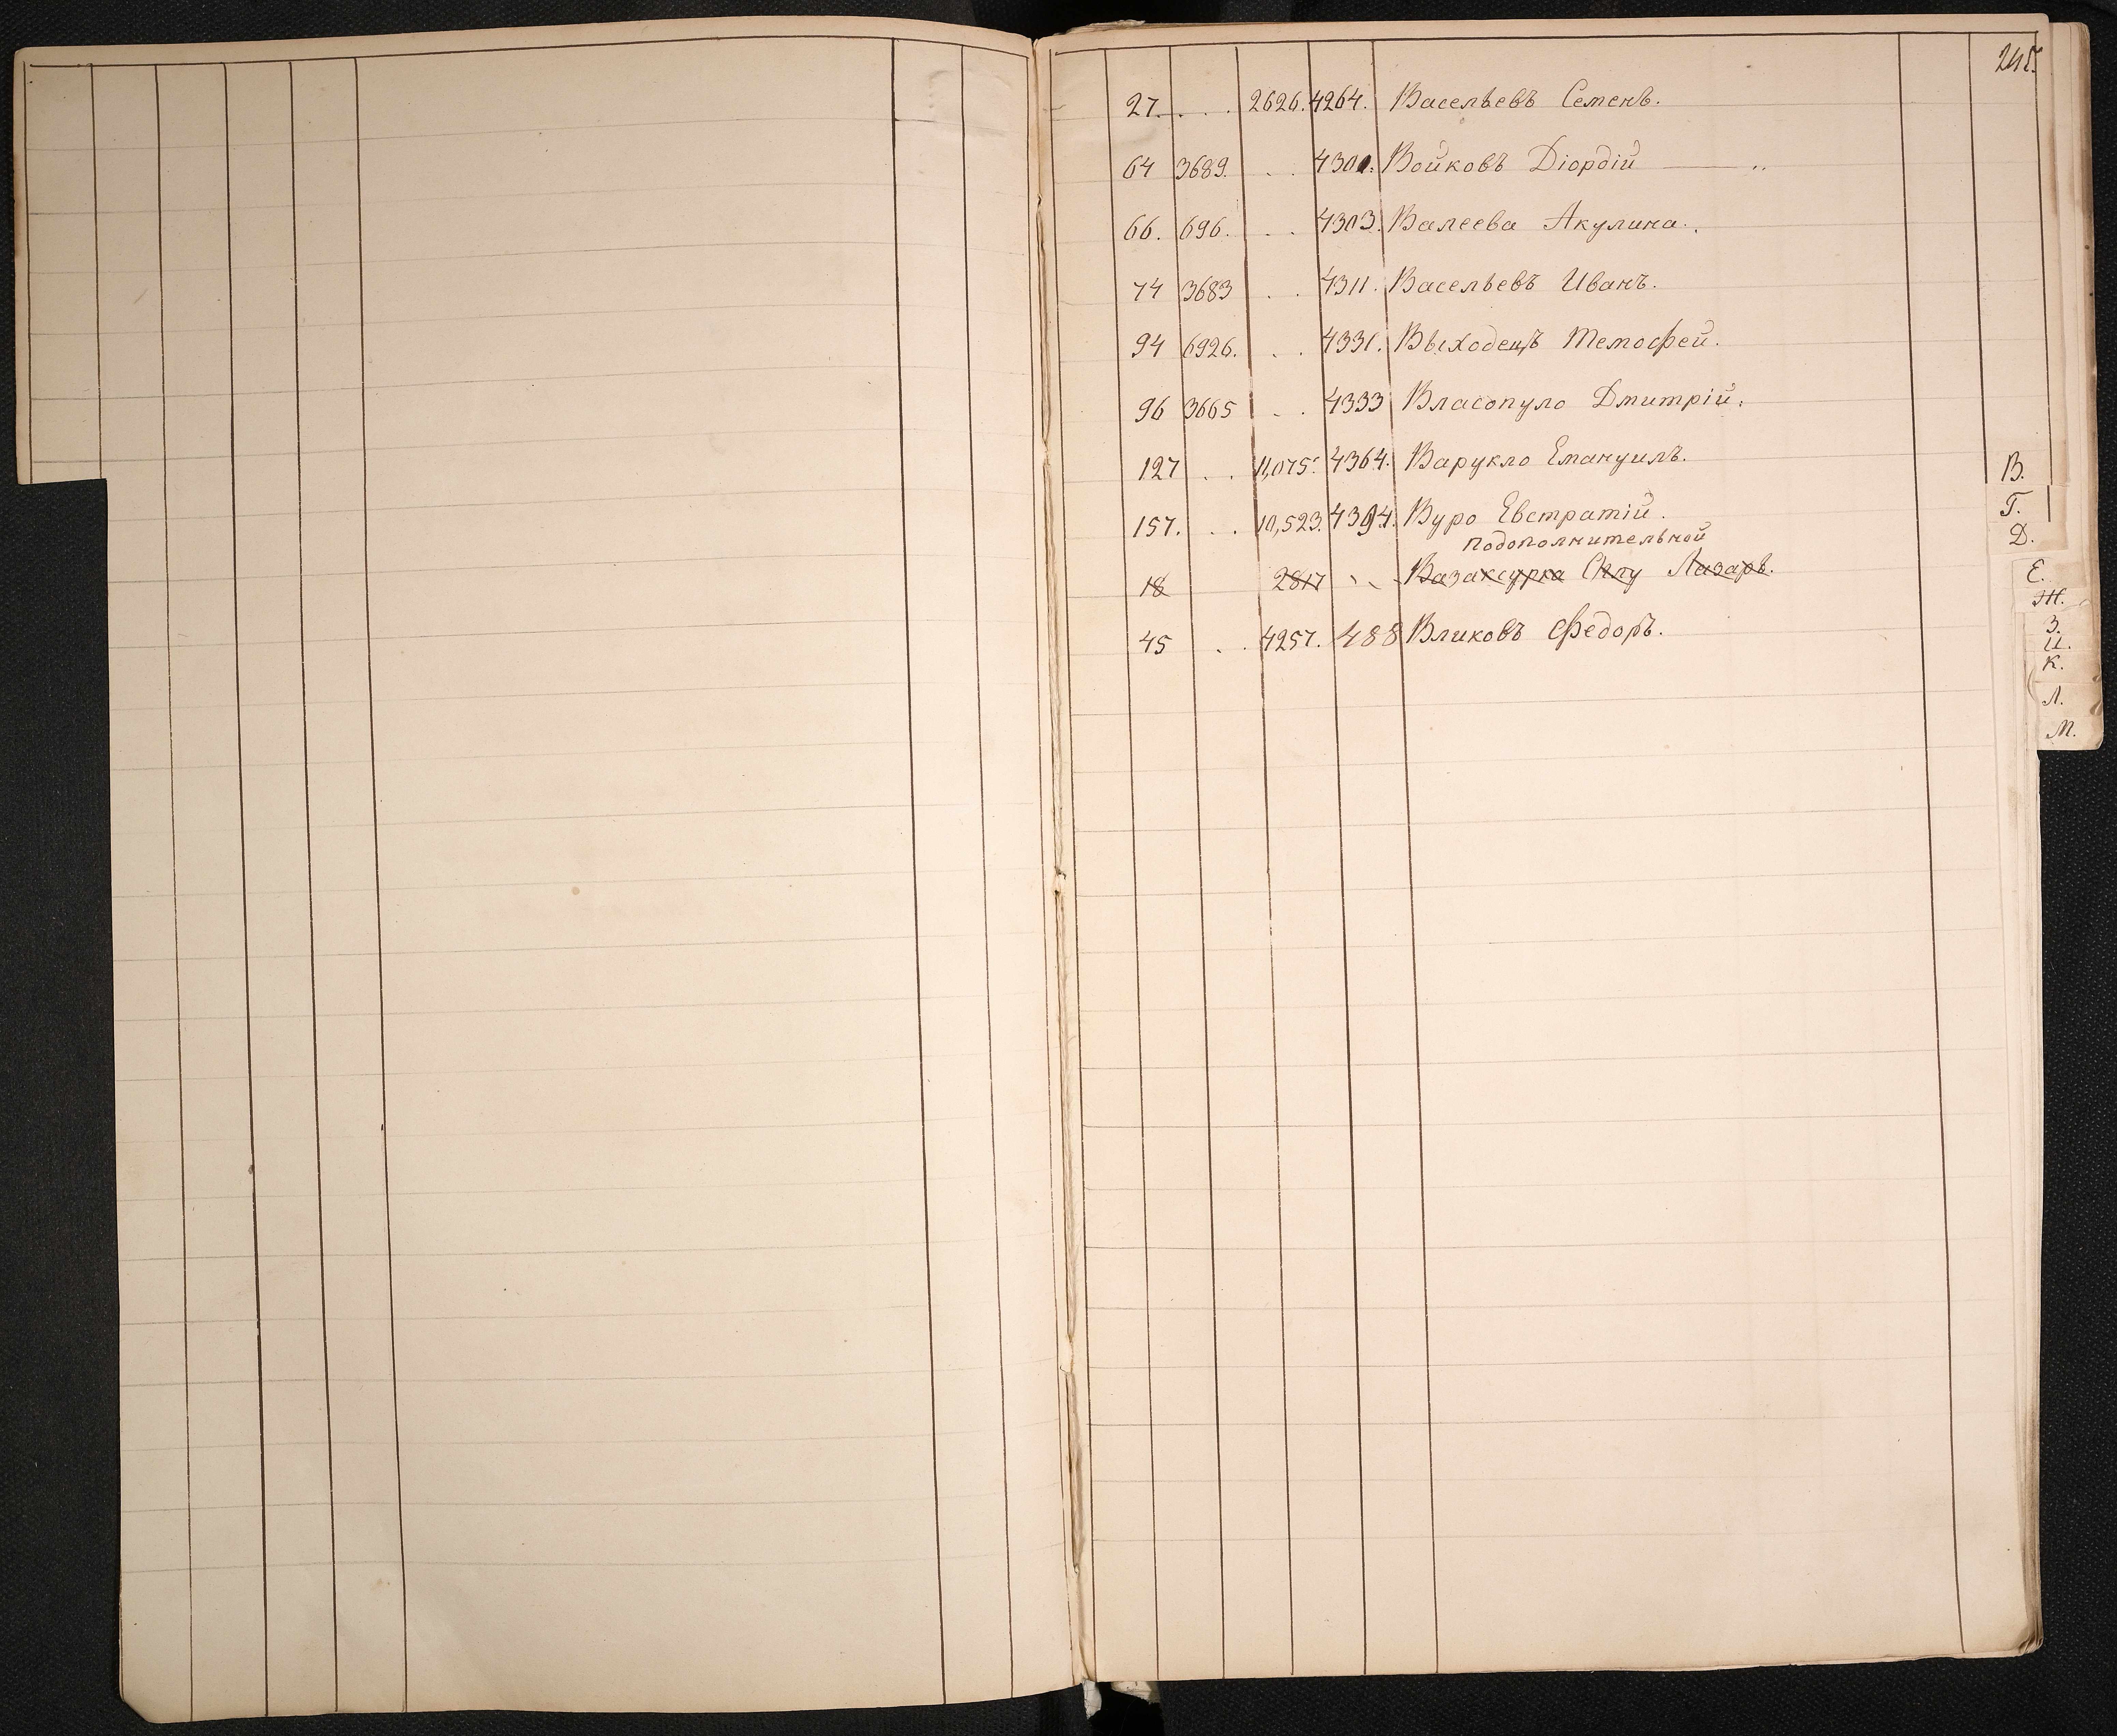 27. . . . 2626. 4264. Васельевъ Семенъ.
64 3689. . . 4301. Войковъ Діордій — „
66. 696. . . 4303. Валеева Акулина.
74 3683 . . 4311. Васельевъ Иванъ.
94 6926. . . 4331. Выходецъ Темофей.
96 3665 . . 4333 Власопуло Дмитрій.
127 . . 11,075. 4364. Варукло Емануилъ.
157. . . 10,523. 4394. Вуро Евстратій.
подополнительной
18 2817 Лазарь.
45 . . 4257. 488 Вликовъ Федоръ.
В.
Г.
Д.
Е.
Ж.
З.
И.
К.
Л.
М.